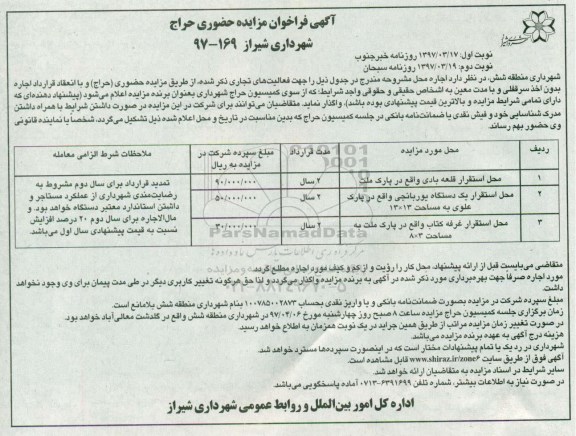 آگهی فراخوان مزایده حضوری حراج
شهرداری شیراز ۱۶۹-۹۷
نوبت اول: ۱۳۹۷/۰۳/۱۷ روزنامه خبرجنوب
نوبت دوم: ۱۳۹۷/۰۳/۱۹ روزنامه سبحان
شهرداری منطقه شش، در نظر دارد اجاره محل مشروحه مندرج در جدول ذیل را جهت فعالیت‌های تجاری ذکر شده، از طریق مزایده حضوری (حراج) و با انعقاد قرارداد اجاره
بدون اخذ سرقفلی و با مدت معین به اشخاص حقیقی و حقوقی واجد شرایط؛ که از سوی کمیسیون حراج شهرداری بعنوان برنده مزایده اعلام می‌شود (پیشنهاد دهنده‌ای که
دارای تمامی شرایط مزایده و بالاترین قیمت پیشنهادی بوده باشد)، واگذار نماید. متقاضیان می‌توانند برای شرکت در این مزایده در صورت داشتن شرایط با همراه داشتن
مدرک شناسایی خود و فیش نقدی یا ضمانت‌نامه بانکی در جلسه کمیسیون حراج که بدین مناسبت در تاریخ و محل اعلام شده ذیل تشکیل می‌گردد، شخصا یا نماینده قانونی
وی حضور بهم رساند.
ردیف محل مورد مزایده مدت قرارداد مبلغ سپرده شرکت در مزایده به ریال ملاحظات شرط الزامی معامله
۱ محل استقرار قلعه بادی واقع در پارک ملت ۲ سال ۹۰/۰۰۰/۰۰۰
۲ محل استقرار یک دستگاه پوربانچی واقع در پارک علوی به مساحت ۱۳×۱۳ ۲ سال ۵۰/۰۰۰/۰۰۰
۳ محل استقرار غرفه کتاب واقع در پارک ملت به مساحت ۳×۸ ۲ سال
تمدید قرارداد برای سال دوم مشروط به
رضایت‌مندی شهرداری از عملکرد مستاجر و
داشتن استاندارد معتبر دستگاه خواهد بود. و
مال‌الاجاره برای سال دوم ۲۰ درصد افزایش
نسبت به قیمت پیشنهادی سال اول می‌باشد.
ParsNamadData
متقاضی می‌بایست قبل از ارائه پیشنهاد، محل کار را رؤیت و از کم و کیف مورد اجاره مطلع گردد.
مورد اجاره صرفا جهت بهره‌برداری مورد ذکر شده در آگهی به برنده مزایده واگذار می‌گردد و لذا حق هرگونه تغییر کاربری دیگر در طی مدت پیمان برای وی وجود نخواهد
داشت.
مبلغ سپرده شرکت در مزایده بصورت ضمانت‌نامه بانکی و یا واریز نقدی بحساب ۱۰۰۷۸۵۰۰۲۸۷۳ بنام شهرداری منطقه شش بلامانع است.
زمان برگزاری جلسه کمیسیون حراج مزایده ساعت ۸ صبح روز چهارشنبه مورخ ۹۷/۰۴/۰۶ در شهرداری منطقه شش واقع در گلدشت معالی‌آباد خواهد بود.
در صورت تغییر زمان مزایده مراتب از طریق همین جراید در یک نوبت همزمان به اطلاع خواهد رسید.
هزینه درج آگهی به عهده برنده مزایده می‌باشد.
شهرداری در رد یک یا تمام پیشنهادات مختار است که در اینصورت سپرده‌ها مسترد خواهد شد.
آگهی فوق از طریق سایت www.shiraz.ir/zone6 قابل مشاهده است.
سایر شرایط در اسناد مزایده به متقاضیان ارائه خواهد شد.
در صورت نیاز به اطلاعات بیشتر، شماره تلفن ۰۷۱۳-۶۳۹۱۶۹۹ آماده پاسخگویی می‌باشد.
اداره کل امور بین‌الملل و روابط عمومی شهرداری شیراز